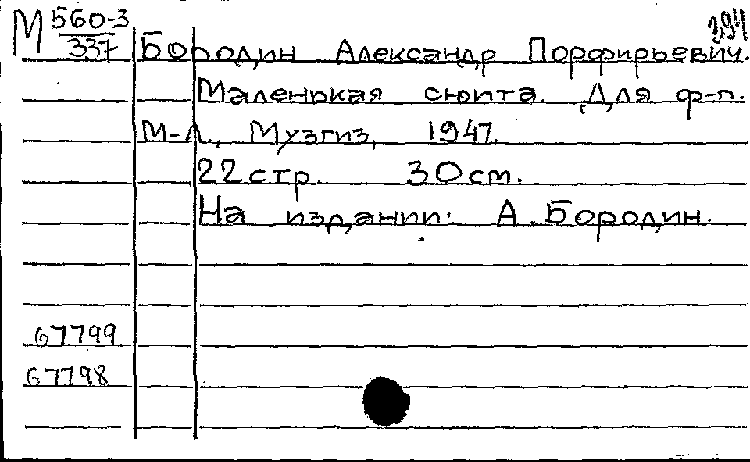 М 560-3
337
Бородин Александр Порфирьевич.
Маленькая сюита. Для ф-п.
М-Л., Музгиз, 1947.
22 стр. 30 см.
На издании: А. Бородин.
67799
67798